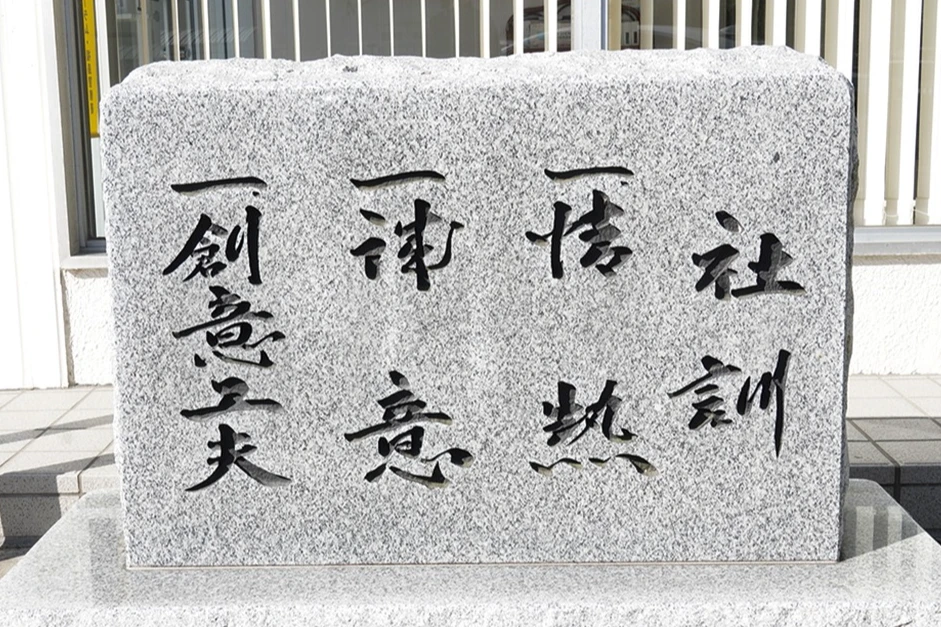 社訓
一情熱
一誠意
一創意工夫